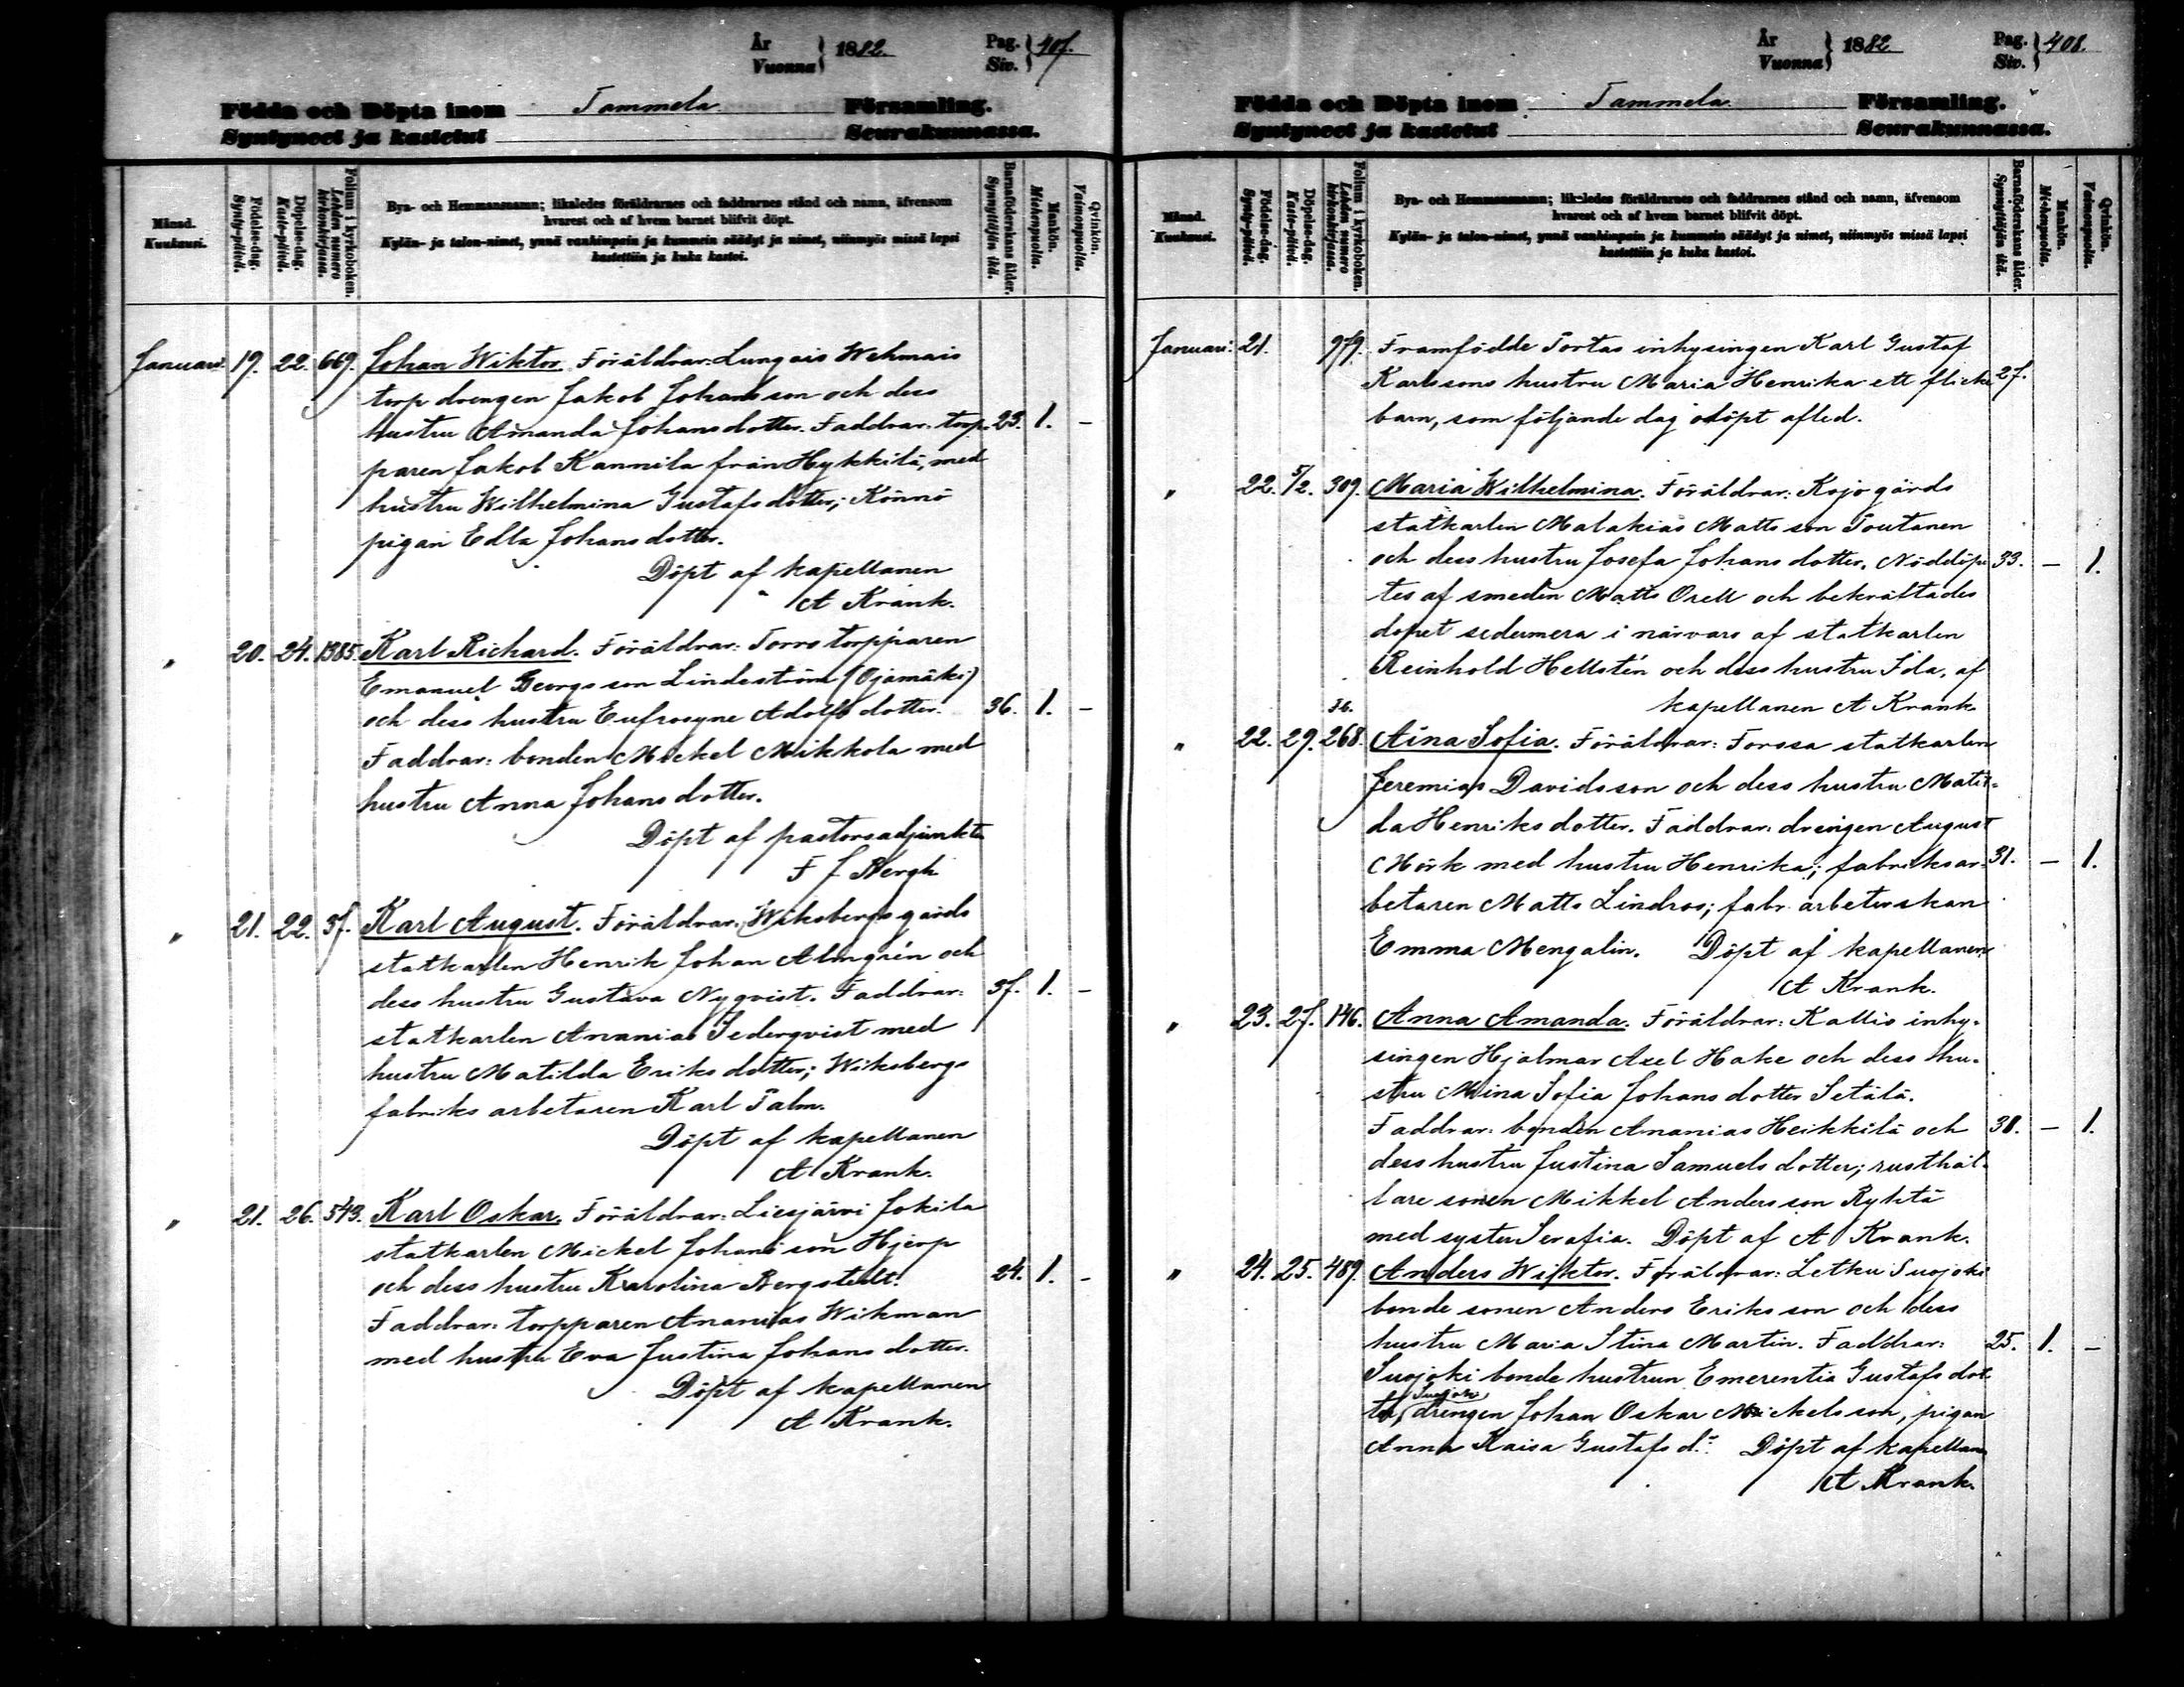 År
Vuonna } 1882. Pag.
Siv. } 407.
Födda och Döpta inom Tammela Församling.
Syntyneet ja kastetut Seurakunnassa.
Månad.
Kuukausi.
Födelse-dag.
Synty-päivä.
Döpelse-dag.
Kaste-päivä.
Folium i kyrkoboken.
Lehden numero kirkonkirjassa.
Bya- och Hemmansnamn; likaledes föräldrarnes och faddrarnes stånd och namn, äfvensom
hvarest och af hvem barnet blifvit döpt.
Kylän- ja talon-nimet, ynnä vanhimpain ja kummein säädyt ja nimet, niinmyös missä lapsi
kastettiin ja kuka kastoi.
Barnaföderskans ålder.
Synnyttäjän ikä.
Mankön.
Miehenpuolia.
Qvinkön.
Vaimonpuolia.
Januari. 19. 22. 669. Johan Wiktor. Föräldrar: Lungais Wehmais
torp drengen Jakob Johansson och dess
hustru Amanda Johansdotter. Faddrar: torp- 23. 1. -
paren Jakob Kannila från Hykkilä, med
hustru Wilhelmina Gustafsdotter; Könnö
pigan Edla Johansdotter.
Döpt af kapellanen
A Krank.
" 20. 24. 1385. Karl Richard. Föräldrar: Torro torpparen
Emanuel Georgsson Lindeström (Ojamäki)
och dess hustru Eufrosyne Adolfsdotter. 36. 1. -
Faddrar: bonden Mickel Mikkola med
hustru Anna Johansdotter.
Döpt af pastorsadjunkten
F J Bergh
" 21. 22. 37. Karl August. Föräldrar: Wiksbergs gårds
statkarlen Henrik Johan Almgrén och
dess hustru Gustava Nyqvist. Faddrar: 37. 1. -
statkarlen Ananias Sederqvist med
hustru Matilda Eriksdotter; Wiksbergs
fabriks arbetaren Karl Palm.
Döpt af kapellanen
A Krank.
" 21. 26. 543. Karl Oskar. Föräldrar: Liesjärvi Jokila
statkarlen Mickel Johansson Hjerp
och dess hustru Karolina Bergstedt. 24. 1. -
Faddrar: torpparen Ananias Wikman
med hustru Eva Justina Johansdotter.
Döpt af kapellanen
A Krank.
År
Vuonna } 1882 Pag.
Siv. } 408.
Födda och Döpta inom Tammela Församling.
Syntyneet ja kastetut Seurakunnassa.
Månad.
Kuukausi.
Födelse-dag.
Synty-päivä.
Döpelse-dag.
Kaste-päivä.
Folium i kyrkoboken.
Lehden numero kirkonkirjassa.
Bya- och Hemmansnamn; likaledes föräldrarnes och faddrarnes stånd och namn, äfvensom
hvarest och af hvem barnet blifvit döpt.
Kylän- ja talon-nimet, ynnä vanhimpain ja kummein säädyt ja nimet, niinmyös missä lapsi
kastettiin ja kuka kastoi.
Barnaföderskans ålder.
Synnyttäjän ikä.
Mankön.
Miehenpuolia.
Qvinkön.
Vaimonpuolia.
Januari. 21. 979. Framfödde Tortas inhysingen Karl Gustaf
Karlssons hustru Maria Henrika ett flicke 27.
barn, som följande dag odöpt afled.
" 22. 5/2. 309. Maria Wilhelmina. Föräldrar: Kojo gårds
statkarlen Malakias Mattsson Toutanen
och dess hustru Josefa Johansdotter. Nöddöp- 33. - 1.
tes af smeden Matts Orell och bekräftades
dopet sedermera i närvaro af statkarlen
Reinhold Hellstén och dess hustru Ida, af
kapellanen A Krank
" 22. 29. 36. 268. Aina Sofia. Föräldrar: Forssa statkarlen
Jeremias Davidsson och dess hustru Matil-
da Henriksdotter. Faddrar: drengen August
Mörk med hustru Henrika; fabriksar- 31. - 1.
betaren Matts Lindroos; fabr. arbeterskan
Emma Mengalin. Döpt af kapellanen
A Krank.
" 23. 27. 146. Anna Amanda. Föräldrar: Kallio inhy-
singen Hjalmar Axel Hake och dess hu-
stru Mina Sofia Johansdotter Setälä.
Faddrar: bonden Ananias Heikkilä och 38. - 1.
dess hustru Justina Samuelsdotter; rusthål-
lare sonen Mikkel Andersson Ryhtä
med syster Serafia. Döpt af A Krank.
" 24. 25. 489. Anders Wiktor. Föräldrar: Letku Suojoki
bonde sonen Anders Eriksson och dess
hustru Maria Stina Martin. Faddrar: 25. 1. -
Suojoki bonde hustrun Emerentia Gustafsdot-
ter, Suojoki drengen Johan Oskar Mickelsson, pigan
Anna Kaisa Gustafs d:r Döpt af kapellanen
A Krank.